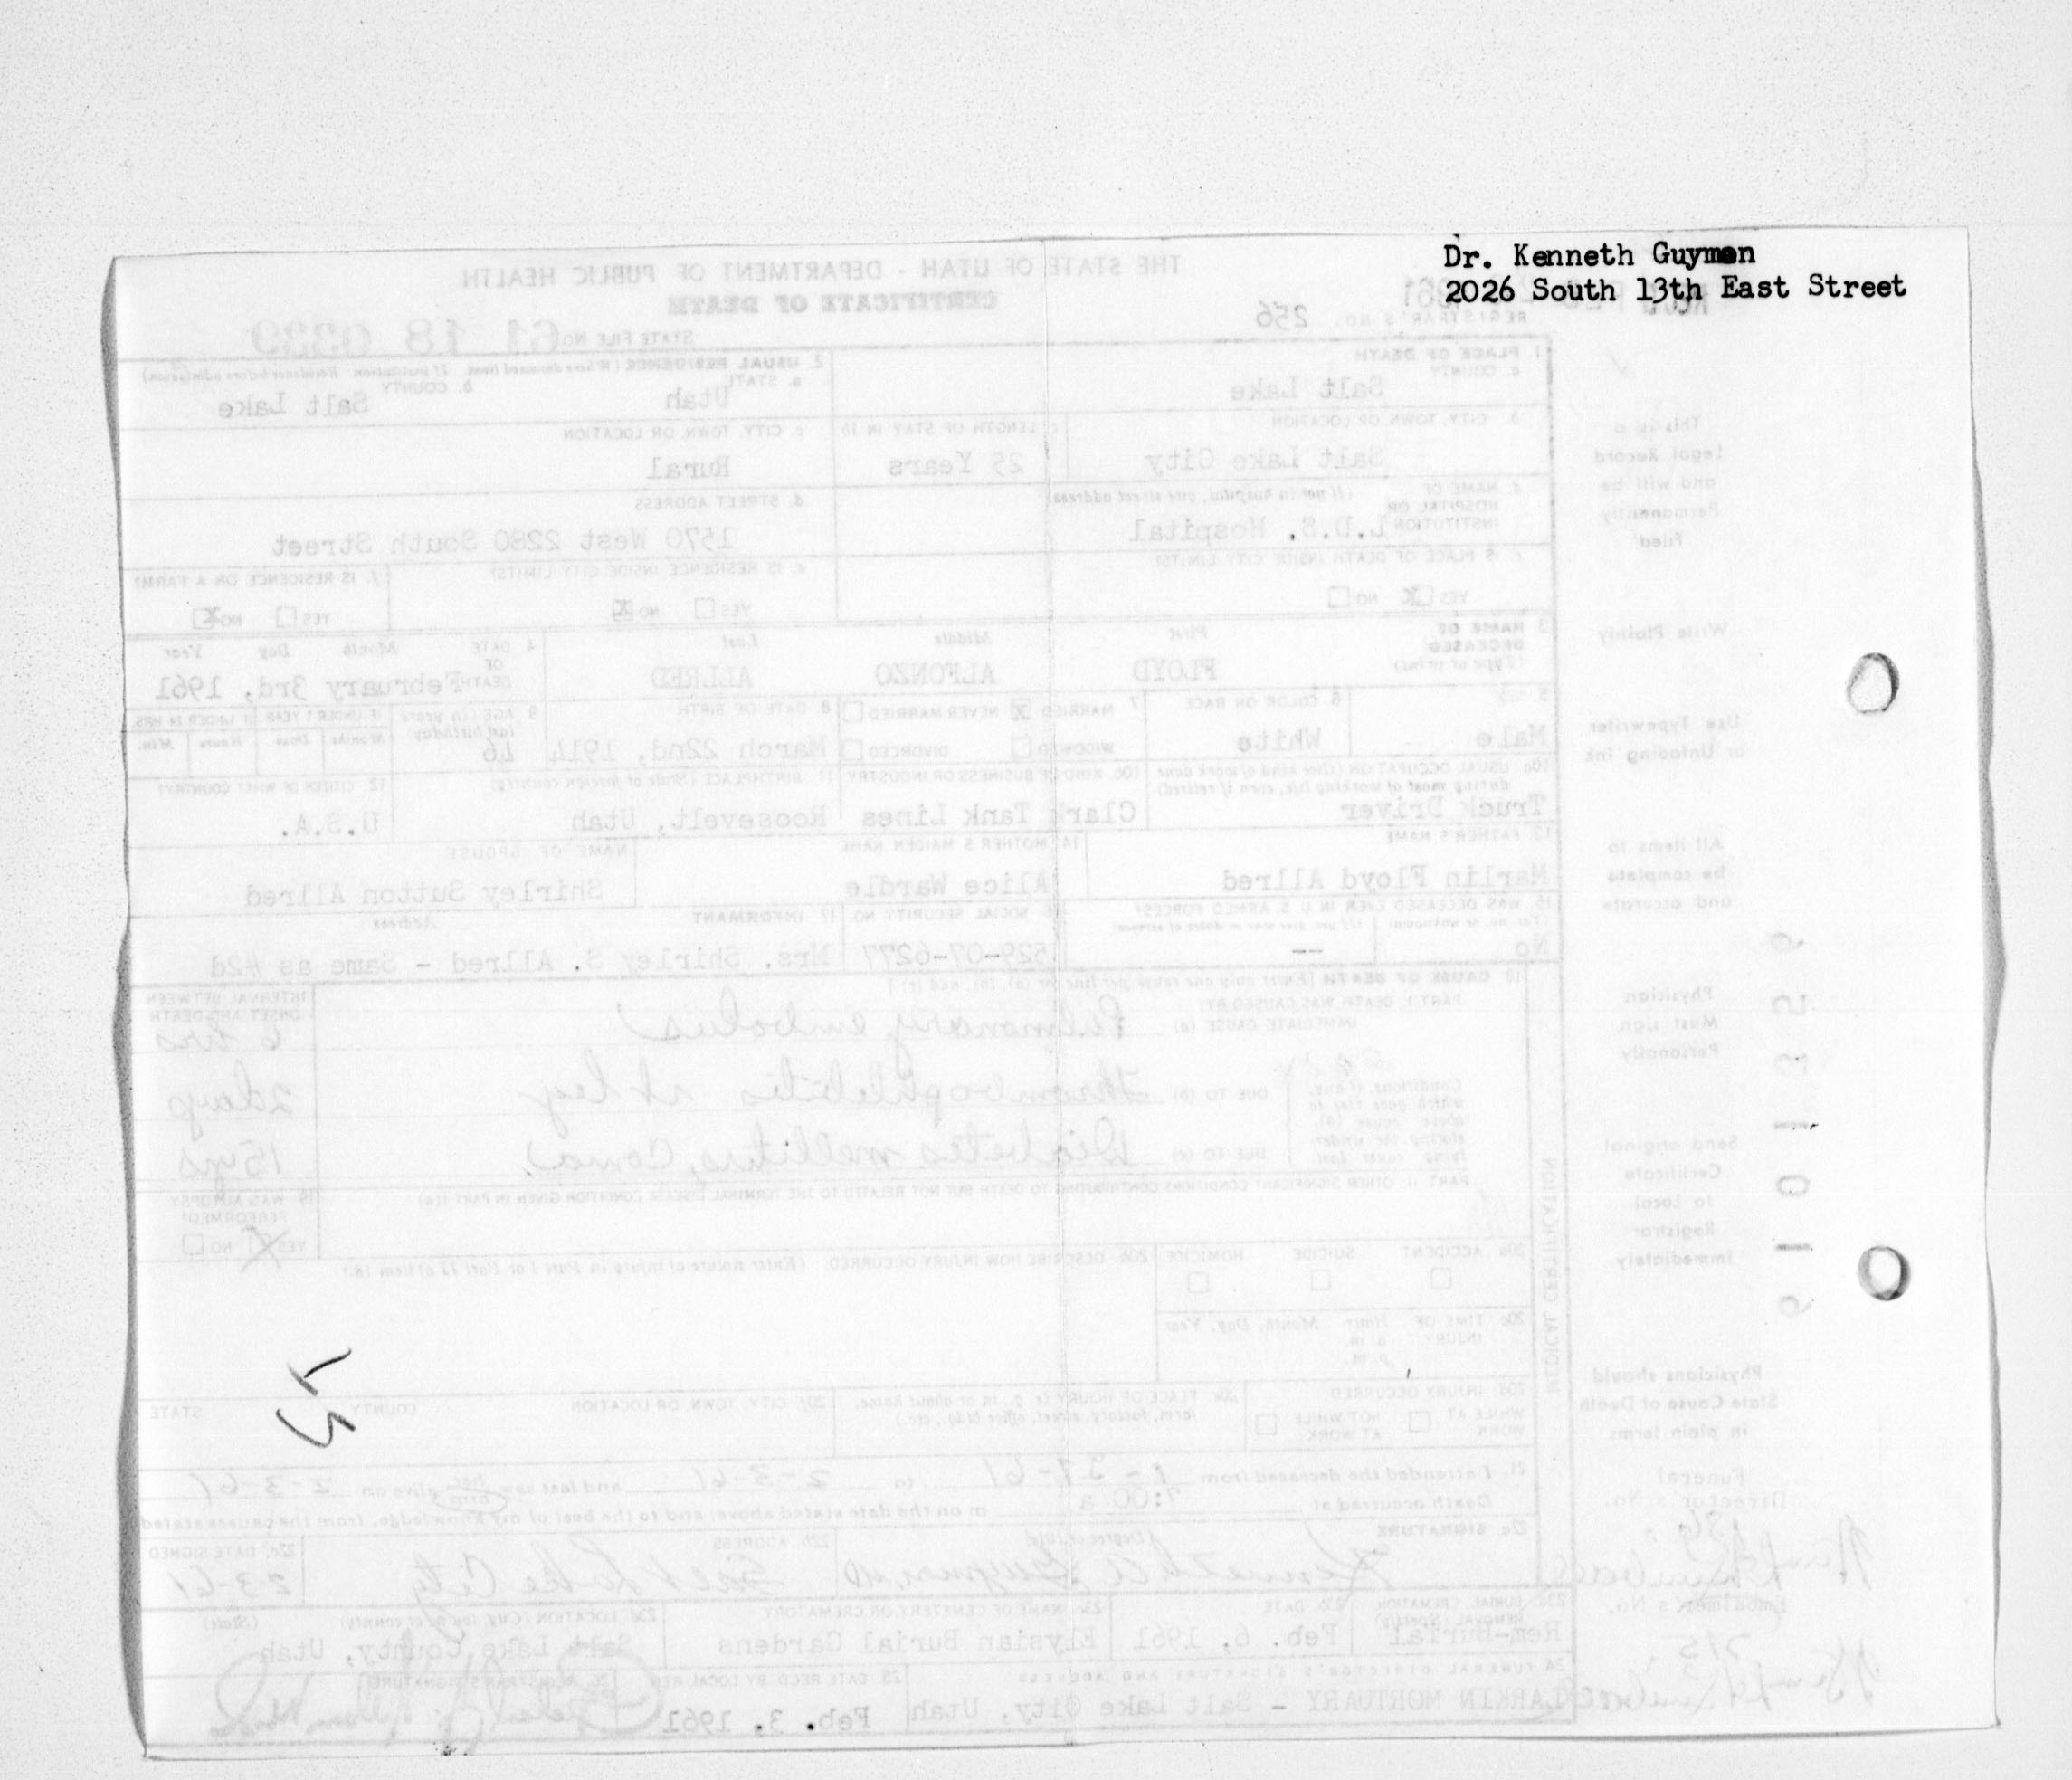 Dr. Kenneth Guymon
2026 South 13th East Street
THE STATE OF UTAH - DEPARTMENT OF PUBLIC HEALTH
CERTIFICATE OF DEATH
STATE FILE NO. 61 18 0339
REGISTRAR'S NO. 256
1. PLACE OF DEATH
a. COUNTY
Salt Lake
2. USUAL RESIDENCE (Where deceased lived. If institution: Residence before admission)
a. STATE
Utah
b. COUNTY
Salt Lake
b. CITY, TOWN, OR LOCATION
Salt Lake City
c. LENGTH OF STAY IN 1b
25 Years
c. CITY, TOWN, OR LOCATION
Rural
d. NAME OF HOSPITAL OR INSTITUTION (If not in hospital, give street address)
L.D.S. Hospital
d. STREET ADDRESS
1570 West 2280 South Street
e. IS PLACE OF DEATH INSIDE CITY LIMITS?
YES X NO
e. IS RESIDENCE INSIDE CITY LIMITS?
YES NO X
f. IS RESIDENCE ON A FARM?
YES NO X
3. NAME OF DECEASED (Type or print)
First Middle Last
FLOYD ALFONZO ALLRED
4. DATE OF DEATH Month Day Year
February 3rd, 1961
5. SEX
Male
6. COLOR OR RACE
White
7. MARRIED X NEVER MARRIED
WIDOWED DIVORCED
8. DATE OF BIRTH
March 22nd, 1914
9. AGE (In years last birthday)
46
IF UNDER 1 YEAR IF UNDER 24 HRS.
Months Days Hours Min.
10a. USUAL OCCUPATION (Give kind of work done during most of working life, even if retired)
Truck Driver
10b. KIND OF BUSINESS OR INDUSTRY
Clark Tank Lines
11. BIRTHPLACE (State or foreign country)
Roosevelt, Utah
12. CITIZEN OF WHAT COUNTRY?
U.S.A.
13. FATHER'S NAME
Marlin Floyd Allred
14. MOTHER'S MAIDEN NAME
Alice Wardle
NAME OF SPOUSE
Shirley Sutton Allred
15. WAS DECEASED EVER IN U.S. ARMED FORCES?
(Yes, no, or unknown) (If yes, give war or dates of service)
No --
16. SOCIAL SECURITY NO.
529-07-6277
17. INFORMANT Address
Mrs. Shirley S. Allred - Same as #2d
18. CAUSE OF DEATH [Enter only one cause per line for (a), (b), and (c).]
PART I. DEATH WAS CAUSED BY:
IMMEDIATE CAUSE (a) Pulmonary embolus
INTERVAL BETWEEN ONSET AND DEATH
6 hrs
Conditions, if any, which gave rise to above cause (a), stating the underlying cause last.
DUE TO (b) Thrombophlebitis rt leg
2 days
DUE TO (c) Diabetes mellitus, coma
15 yrs
PART II. OTHER SIGNIFICANT CONDITIONS CONTRIBUTING TO DEATH BUT NOT RELATED TO THE TERMINAL DISEASE CONDITION GIVEN IN PART I(a)
19. WAS AUTOPSY PERFORMED?
YES X NO
20a. ACCIDENT SUICIDE HOMICIDE
20b. DESCRIBE HOW INJURY OCCURRED. (Enter nature of injury in Part I or Part II of item 18.)
20c. TIME OF INJURY Hour Month, Day, Year
a.m.
p.m.
20d. INJURY OCCURRED
WHILE AT WORK NOT WHILE AT WORK
20e. PLACE OF INJURY (e.g., in or about home, farm, factory, street, office bldg., etc.)
20f. CITY, TOWN, OR LOCATION COUNTY STATE
21. I attended the deceased from to 2-3-61 and last saw her him alive on 2-3-61
Death occurred at 7:00 a m on the date stated above; and to the best of my knowledge, from the causes stated
22a. SIGNATURE (Degree or title)
Kenneth A Guymon MD
22b. ADDRESS
Salt Lake City
22c. DATE SIGNED
2-3-61
23a. BURIAL, CREMATION, REMOVAL (Specify)
Rem-Burial
23b. DATE
Feb. 6, 1961
23c. NAME OF CEMETERY OR CREMATORY
Elysian Burial Gardens
23d. LOCATION (City, town, or county) (State)
Salt Lake County, Utah
24. FUNERAL DIRECTOR'S SIGNATURE AND ADDRESS
LARKIN MORTUARY - Salt Lake City, Utah
25. DATE RECD BY LOCAL REG.
Feb. 3, 1961
26. REGISTRAR'S SIGNATURE
MEDICAL CERTIFICATION
This is a
Legal Record
and will be
Permanently
Filed
Write Plainly
Use Typewriter
or Unfading ink
All items to
be complete
and accurate
Physician
Must sign
Personally
Send original
Certificate
to Local
Registrar
Immediately
Physicians should
State Cause of Death
in plain terms
Funeral
Director's No.
Embalmer's No.